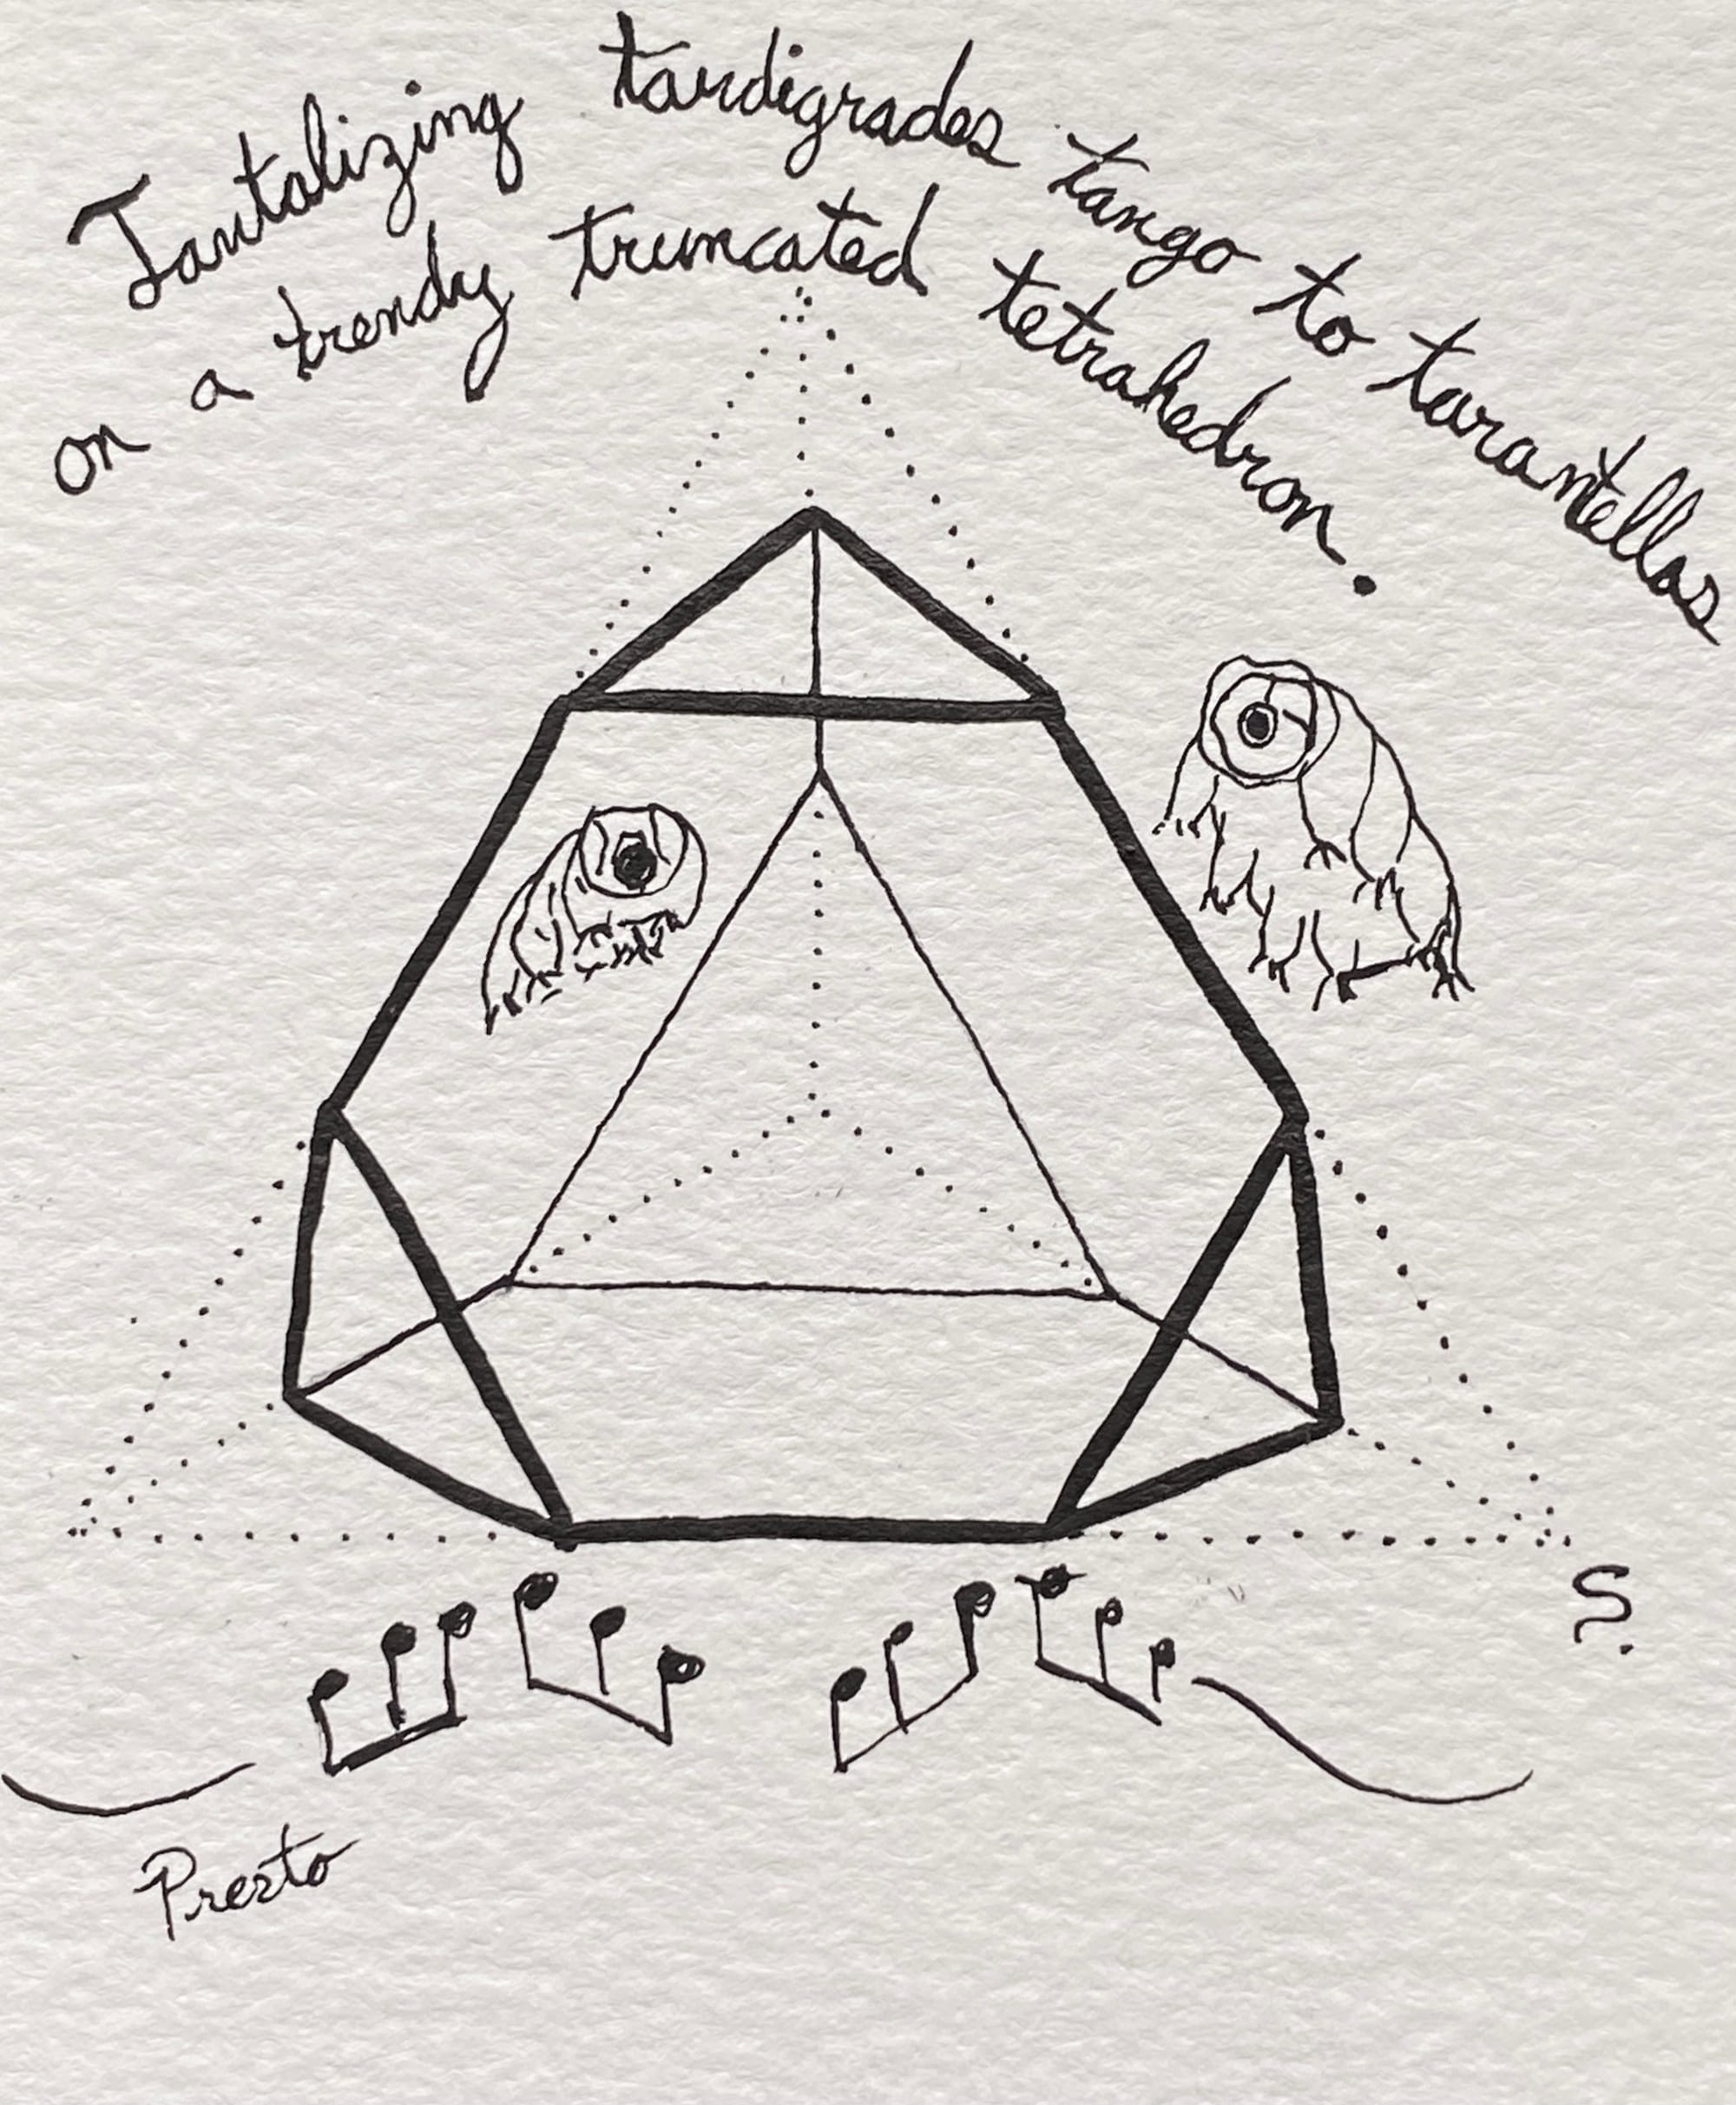 Tantalizing tardigrades tango to tarantellas
on a trendy truncated tetrahedron.
S.
Presto